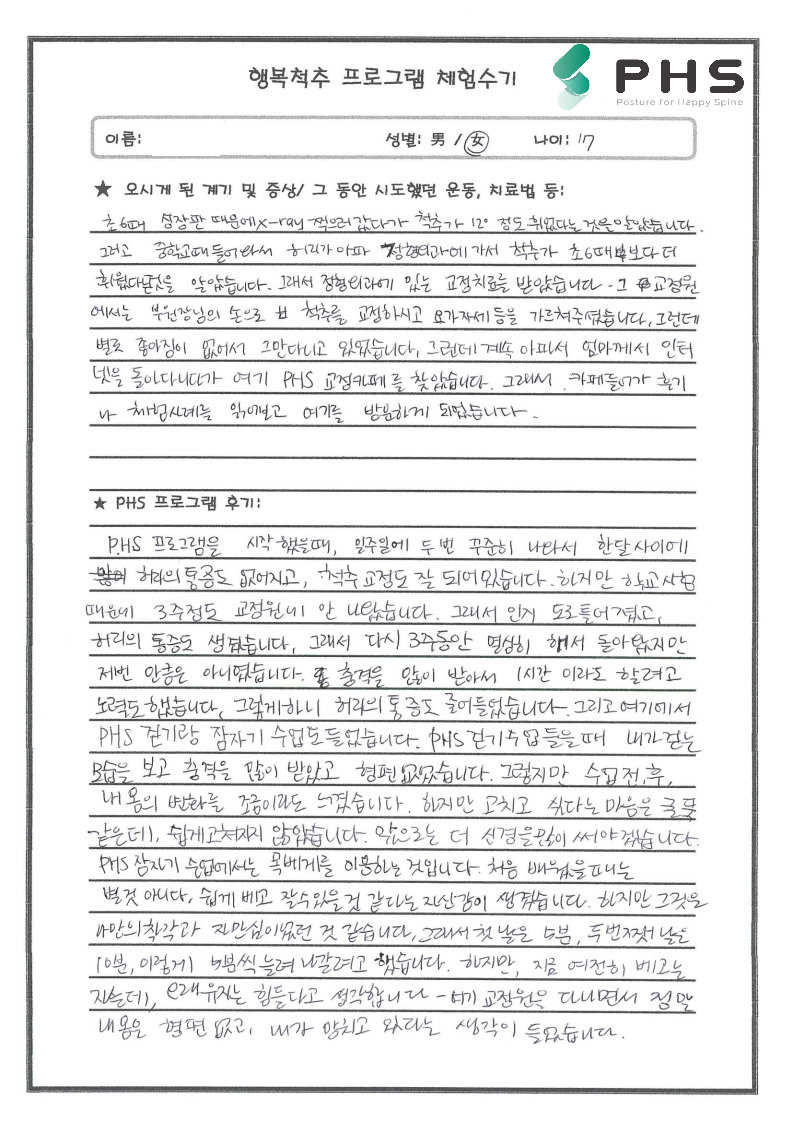 행복척추 프로그램 체험수기
PHS
Posture for Happy Spine
이름:
성별: 男 / 女
나이: 17
★ 오시게 된 계기 및 증상/ 그 동안 시도했던 운동, 치료법 등:
초6때 성장판 때문에 x-ray 찍으러 갔다가 척추가 12° 정도 휘었다는 것은 알았습니다.
그러고 중학교때 들어와서 허리가 아파 정형외과에 가서 척추가 초6때보다 더
휘었다는것을 알았습니다. 그래서 정형외과에 있는 교정치료를 받았습니다. 그 교정원
에서는 부원장님의 손으로 척추를 교정하시고 요가자세 등을 가르쳐주셨습니다. 그런데
별로 좋아짐이 없어서 그만다니고 있었습니다. 그런데 계속 아파서 엄마께서 인터
넷을 돌아다니다가 여기 PHS 교정카페를 찾았습니다. 그래서 카페들어가 후기
나 체험사례를 읽어보고 여기를 방문하게 되었습니다.
★ PHS 프로그램 후기:
PHS 프로그램을 시작했을때, 일주일에 두번 꾸준히 나와서 한달사이에
허리의 통증도 없어지고, 척추교정도 잘 되어있습니다. 하지만 학교시험
때문에 3주정도 교정원에 안 나왔습니다. 그래서 인지 도로 틀어졌고,
허리의 통증도 생겼습니다. 그래서 다시 3주동안 열심히 해서 돌아왔지만
저번 만큼은 아니였습니다. 충격을 많이 받아서 1시간 이라도 할려고
노력도 했습니다. 그렇게하니 허리의 통증도 줄어들었습니다. 그리고 여기에서
PHS 걷기랑 잠자기 수업도 들었습니다. PHS 걷기수업 들을때 내가 걷는
모습을 보고 충격을 많이 받았고 형편없었습니다. 그렇지만 수업전,후,
내 몸의 변화를 조금이라도 느꼈습니다. 하지만 고치고 싶다는 마음은 굴뚝
같은데, 쉽게 고쳐지지 않았습니다. 앞으로는 더 신경을 많이 써야겠습니다.
PHS 잠자기 수업에서는 목베게를 이용하는 것입니다. 처음 배웠을때는
별것 아니다, 쉽게 베고 잘수있을것 같다는 자신감이 생겼습니다. 하지만 그것은
나만의 착각과 자만심이었던 것 같습니다. 그래서 첫날은 5분, 두번째날은
10분, 이렇게 5분씩 늘려 나갈려고 했습니다. 하지만, 지금 여전히 베고는
자는데, 오래유지는 힘들다고 생각합니다 - 여기 교정원은 다니면서 정말
내몸은 형편 없고, 내가 망치고 왔다는 생각이 들었습니다.